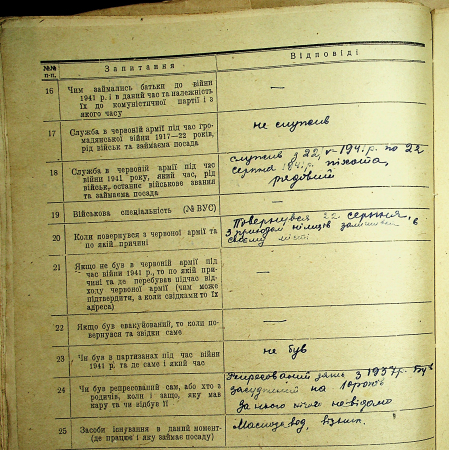 №№ п-п.
Запитання
Відповіді
16
Чим займались батьки до війни
1941 р. і в даний час та належність
їх до комуністичної партії і з
якого часу
—
17
Служба в червоній армії під час гро-
мадянської війни 1917—22 років,
рід військ та займаєма посада
не служив
18
Служба в червоній армії під час
війни 1941 року, який час, рід
військ, останнє військове звання
та займаєма посада
служив з 22, 1941 р. по 22
серпня 1941 р. піхота,
рядовий
19
Військова спеціальність (№ ВУС)
—
20
Коли повернувся з червоної армії та
по якій причині
Повернувся 22 серпня,
з приходом німців в
своєму
21
Якщо не був в червоній армії під
час війни 1941 р., то по якій при-
чині та де перебував підчас від-
ходу червоної армії (чим може
підтвердити, а коли свідками то їх
адреса)
—
22
Якщо був евакуйований, то коли по-
вернувся та звідки саме
—
23
Чи був в партизанах під час війни
1941 р. та де саме і який час
не був
24
Чи був репресований сам, або хто з
родичів, коли і защо, яку мав
кару та чи відбув її
Репресований з 1937 р. був
засуджений на 10 років
за нього нічого не відомо
25
Засоби існування в даний момент-
(де працює і яку займає посаду)